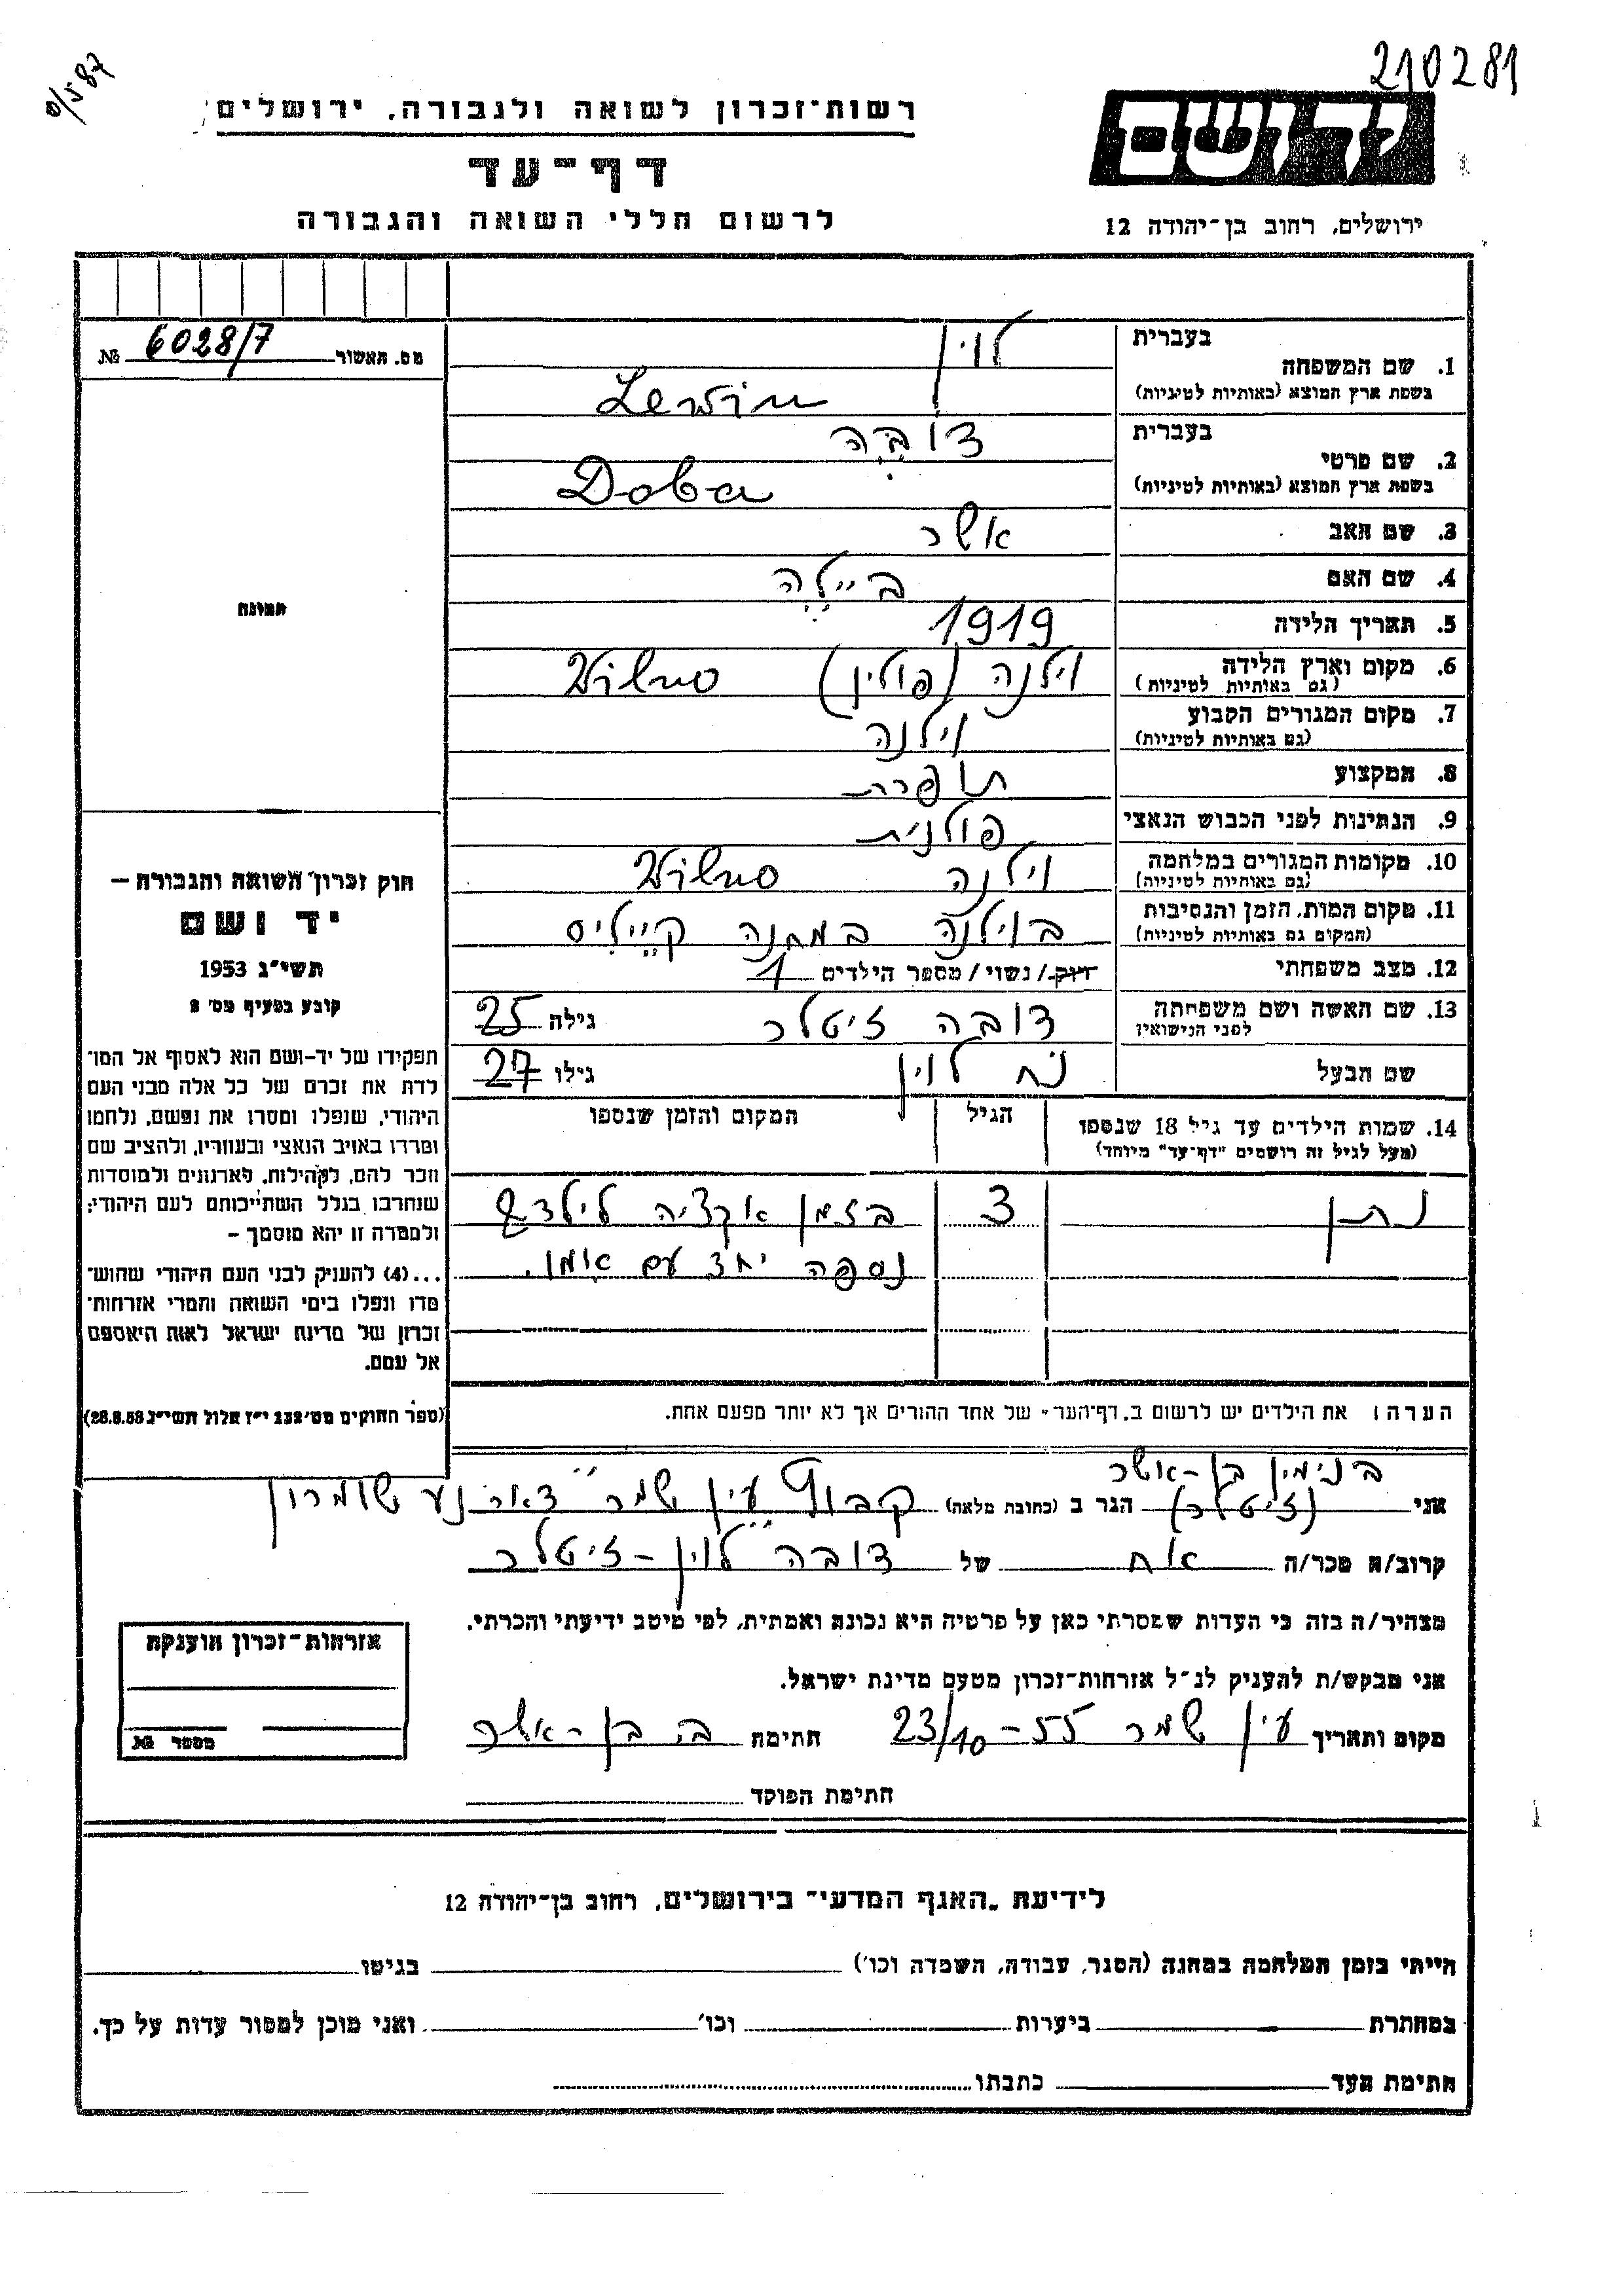 210281
0/587
רשות־זכרון לשואה ולגבורה, ירושלים
ידושם
דף־עד
לרשום חללי השואה והגבורה
ירושלים, רחוב בן־יהודה 12
מס. האשור 6028/7 №
תמונה
בעברית
1. שם המשפחה לוין
בשפת ארץ המוצא (באותיות לטיניות) Lewin
בעברית
2. שם פרטי דובה
בשפת ארץ המוצא (באותיות לטיניות) Doba
3. שם האב אשר
4. שם האם ביילה
5. תאריך הלידה 1919
6. מקום וארץ הלידה וילנה (פולין) Wilno
(גם באותיות לטיניות)
7. מקום המגורים הקבוע וילנה
(גם באותיות לטיניות)
8. המקצוע תופרת
9. הנתינות לפני הכבוש הנאצי פולנית
10. מקומות המגורים במלחמה וילנה Wilno
(גם באותיות לטיניות)
11. מקום המות, הזמן והנסיבות בוילנה במחנה קייליס
(המקום גם באותיות לטיניות)
12. מצב משפחתי רווק/נשוי/מספר הילדים 1
13. שם האשה ושם משפחתה דובה זיטלר גילה 25
לפני הנישואין
שם הבעל נח לוין גילו 27
14. שמות הילדים עד גיל 18 שנספו הגיל המקום והזמן שנספו
(מעל לגיל זה רושמים "דף־עד" מיוחד)
נתן 3 בזמן אקציה לילדים
נספה יחד עם אימו.
הערה: את הילדים יש לרשום ב„דף־העד" של אחד ההורים אך לא יותר מפעם אחת.
חוק זכרון השואה והגבורה —
יד ושם
תשי״ג 1953
קובע בסעיף מס׳ 2
תפקידו של יד־ושם הוא לאסוף אל המו־
לדת את זכרם של כל אלה מבני העם
היהודי, שנפלו ומסרו את נפשם, נלחמו
ומרדו באויב הנאצי ובעוזריו, ולהציב שם
וזכר להם, לקהילות, לארגונים ולמוסדות
שנחרבו בגלל השתייכותם לעם היהודי;
ולמטרה זו יהא מוסמך –
...(4) להעניק לבני העם היהודי שהוש־
מדו ונפלו בימי השואה והמרי אזרחות־
זכרון של מדינת ישראל לאות היאספם
אל עמם.
(ספר החוקים מס׳ 132 י״ז אלול תשי״ג 28.8.53)
בנימין בן-אשר
אני (זיטלר) הגר ב (כתובת מלאה) קבוץ עין שמר דאר נע שומרון
קרוב/ה מכר/ה אח של דובה לוין - זיטלר
מצהיר/ה בזה כי העדות שמסרתי כאן על פרטיה היא נכונה ואמתית, לפי מיטב ידיעתי והכרתי.
אני מבקש/ת להעניק לנ״ל אזרחות־זכרון מטעם מדינת ישראל.
מקום ותאריך עין שמר 23/10-55 חתימה ב. בן-אשר
חתימת הפוקד
אזרחות־זכרון הוענקה
מספר №
לידיעת „האגף המדעי" בירושלים, רחוב בן־יהודה 12
הייתי בזמן המלחמה במחנה (הסגר, עבודה, השמדה וכו׳) בגיטו
במחתרת ביערות וכו׳ ואני מוכן למסור עדות על כך.
חתימת העד כתבתו